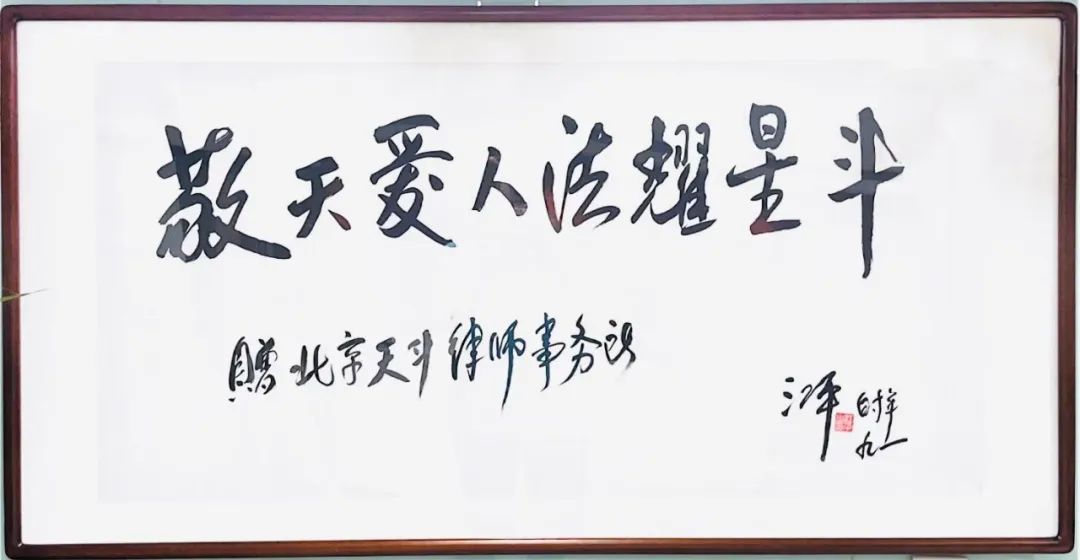 敬天爱人法耀星斗
赠北京天斗律师事务所
江平 时年
九一